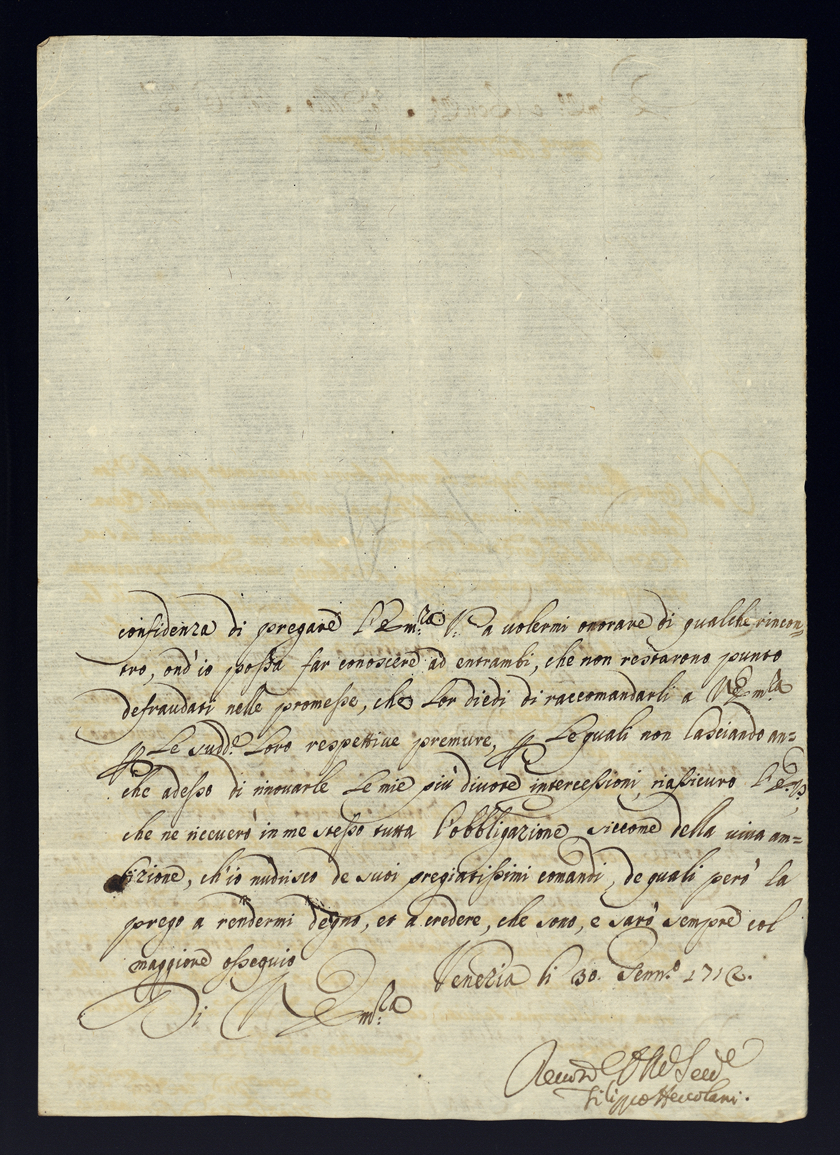 confidenza di pregare l'Em.za V.ra a volermi onorare di qualche rincon=
tro, ond'io possa far conoscere ad entrambi, che non restarono punto
defraudati nelle promesse, che Lor diedi di raccomandarli a V Em.za
p Le sudd.e Loro respettive premure, p Le quali non lasciando an=
che adesso di rinovarle Le mie più divote intercessioni, riassicuro l'Em.
che ne riceverò in me stesso tutta l'obbligazione, siccome della viva am=
bizione, ch'io nudrisco de suoi pregiatissimi comandi, de quali però la
prego a rendermi degno, et a credere, che sono, e sarò sempre col
maggiore ossequio
Venezia li 30. Genn.o 1712.
Di V Em.za
Filippo Hercolani.